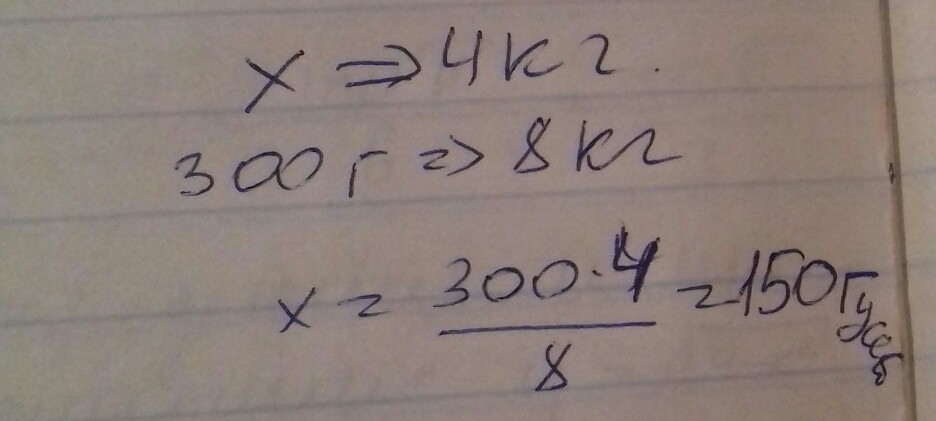 x ⇒ 4кг.
300г => 8кг
x = 300·4 / 8 = 150 Гусев